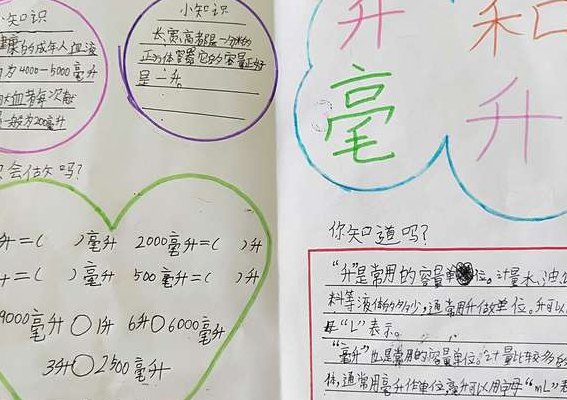 小知识
健康的成年人血液
为4000—5000毫升
献血者每次献
般为200毫升
小知识
长、宽、高都是一分米的
正方体容器它的容量正好
是一升。
升和
毫升
会估么吗?
升=( )毫升 2000毫升=( )升
升=( )毫升 500毫升=( )升
9000毫升○1升 6升○6000毫升
3升○2500毫升
你知道吗?
“升”是常用的容量单位。计量水、油、
料等液体的多少,通常用升做单位。升可以
“L”表示。
“毫升”也是常用的容量单位。计量比较多的
体,通常用毫升作单位,毫升可以用字母“mL”表